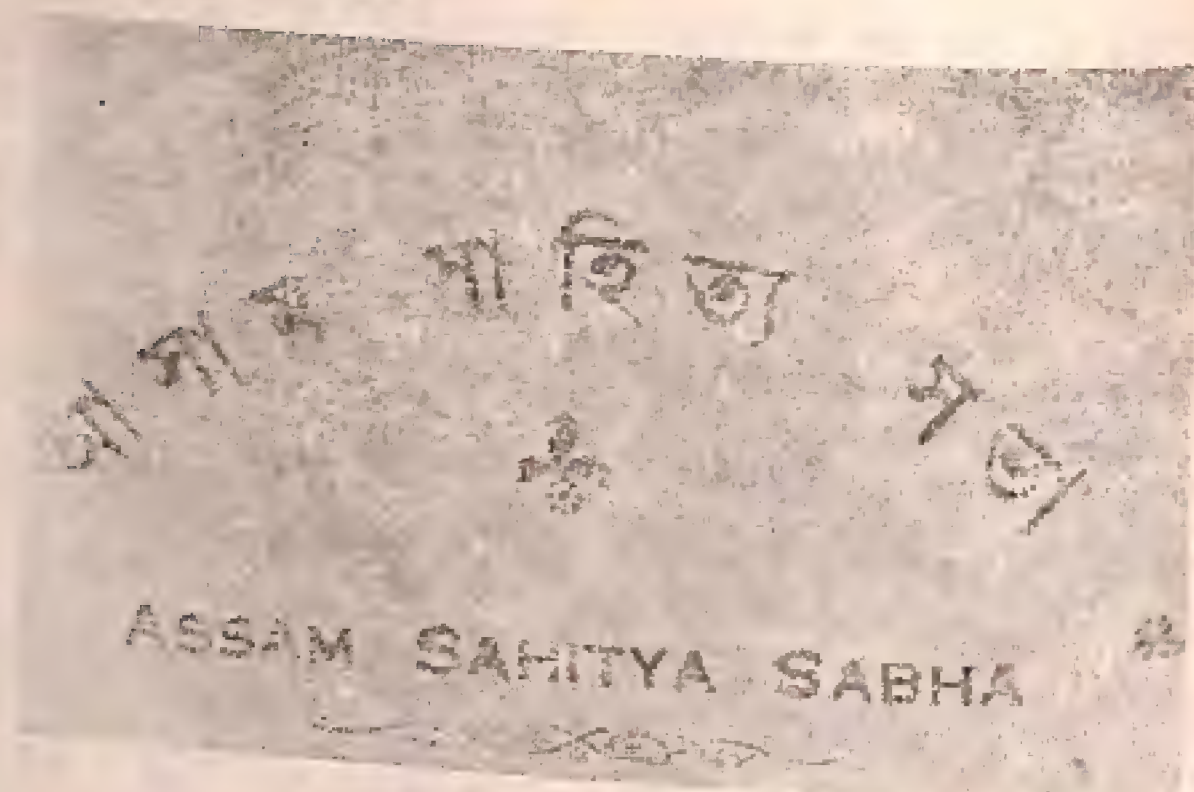 আসাম সাহিত্য সভা
ASSAM SAHITYA SABHA